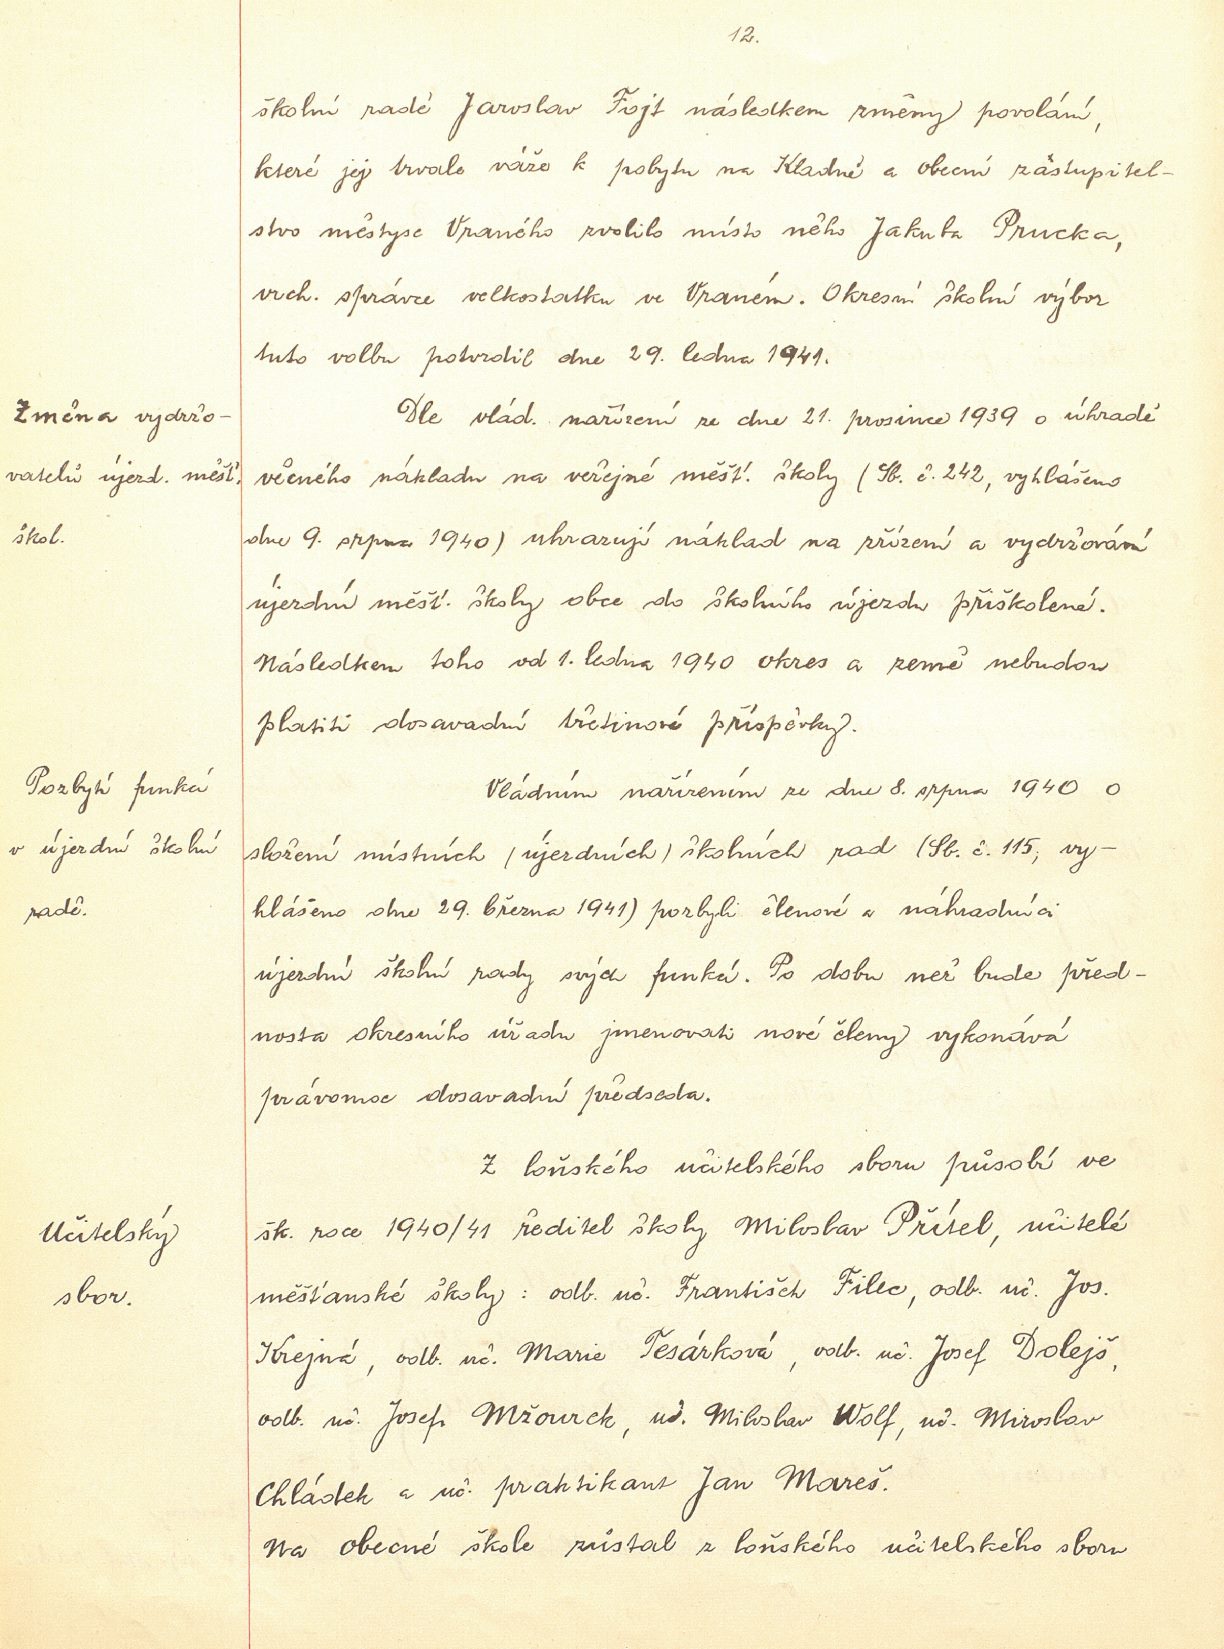 12.
školní radě Jaroslav Fojt následkem změny povolání,
které jej trvale váže k pobytu na Kladně a obecní zástupitel-
stvo městyse Vraného zvolilo místo něho Jakuba Prucka,
vrch. správce velkostatku ve Vraném. Okresní školní výbor
tuto volbu potvrdil dne 29. ledna 1941.
Změna vydržo-
vatelů újezd. měšť.
škol.
Dle vlád. nařízení ze dne 21. prosince 1939 o úhradě
věcného nákladu na veřejné měšť. školy (Sb. č. 242, vyhlášeno
dne 9. srpna 1940) uhrazují náklad na zřízení a vydržování
újezdní měšť. školy obce do školního újezdu přiškolené.
Následkem toho od 1. ledna 1940 okres a země nebudou
platiti dosavadní třetinové příspěvky.
Pozbytí funkcí
v újezdní školní
radě.
Vládním nařízením ze dne 8. srpna 1940 o
složení místních (újezdních) školních rad (Sb. č. 115, vy-
hlášeno dne 29. března 1941) pozbyli členové a náhradníci
újezdní školní rady svých funkcí. Po dobu než bude před-
nosta okresního úřadu jmenovati nové členy vykonává
právomoc dosavadní předseda.
Učitelský
sbor.
Z loňského učitelského sboru působí ve
šk. roce 1940/41 ředitel školy Miloslav Přítel, učitelé
měšťanské školy: odb. uč. František Filec, odb. uč. Jos.
Krejná, odb. uč. Marie Tesárková, odb. uč. Josef Dolejš,
odb. uč. Josef Mžourek, uč. Miloslav Wolf, uč. Miroslav
Chládek a uč. praktikant Jan Mareš.
Na obecné škole zůstal z loňského učitelského sboru